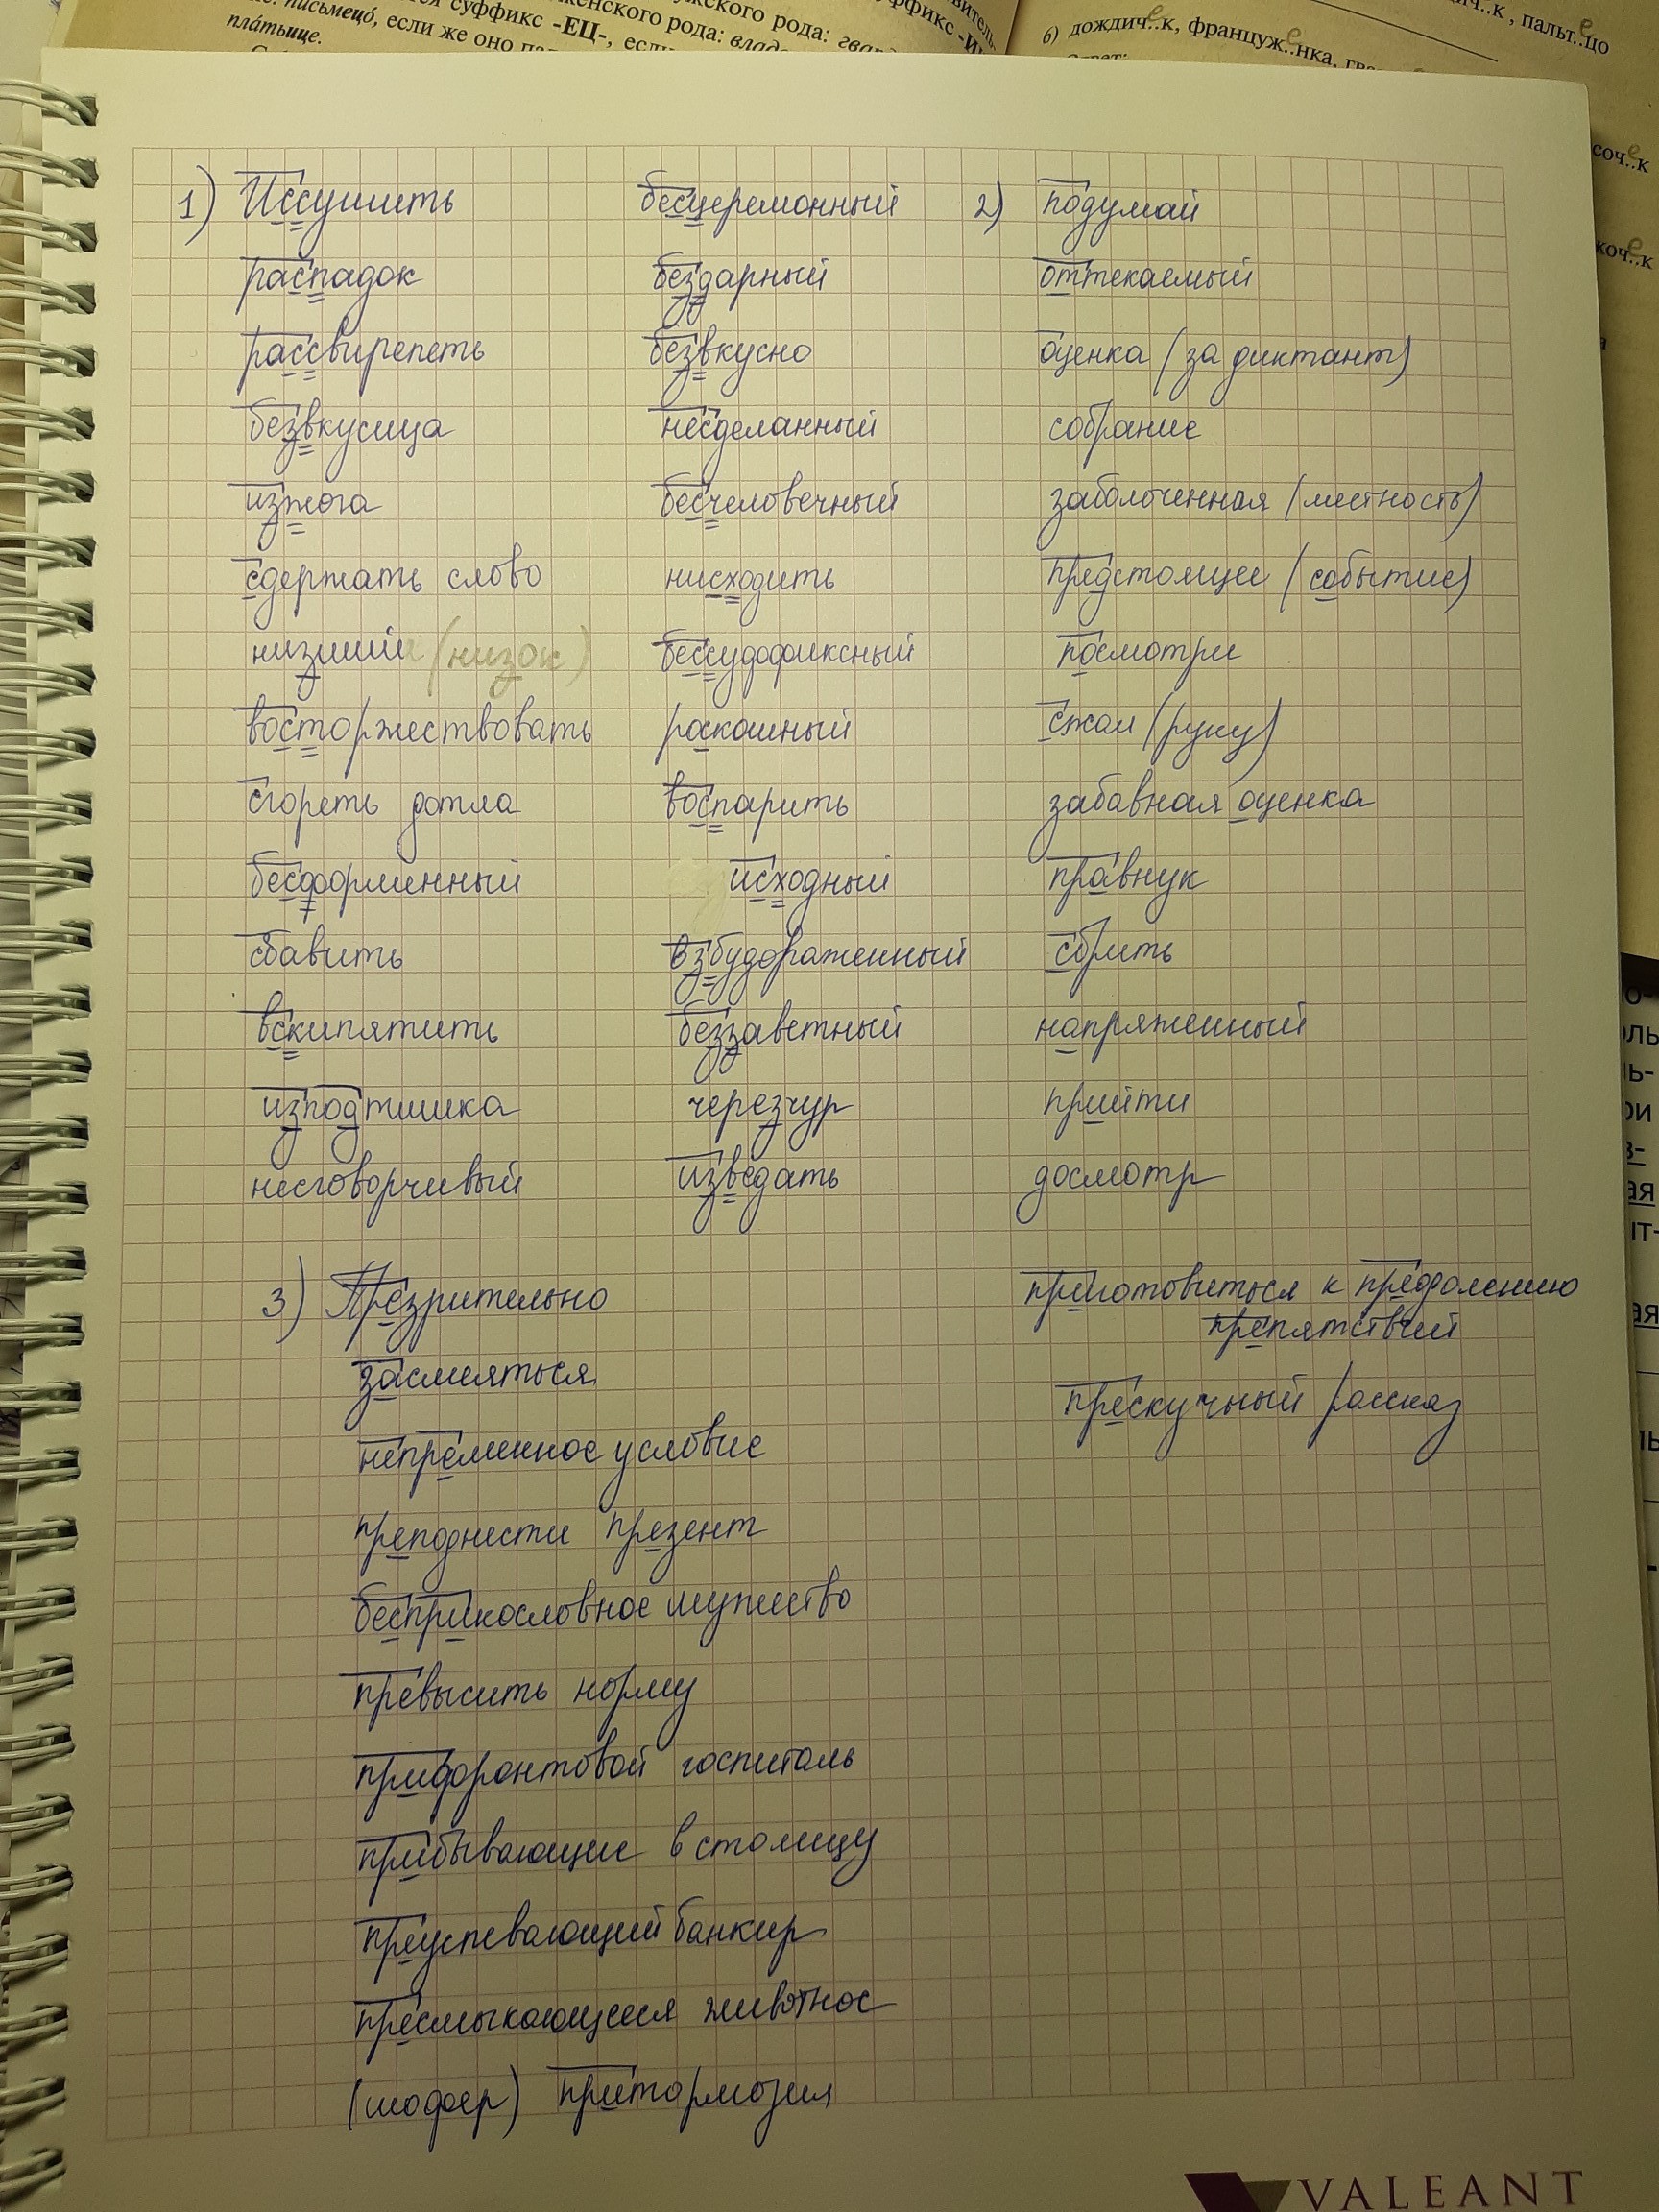 письмецо́, если же оно па
тся суффикс -ЕЦ-, если
женского рода: владе
ужского рода: гвард
уффикс -И
пла́тьице.
б) дождич..к, француж..нка, гва
ич..к, пальт..цо
соч..к
коч..к
1) Иссушить
распадок
рассвирепеть
безвкусица
изжога
сдержать слово
низший (низок)
восторжествовать
сгореть дотла
бесформенный
сбавить
вскипятить
изподтишка
несговорчивый
бесцеремонный
бездарный
безвкусно
несделанный
бесчеловечный
нисходить
бессуффиксный
раскошный
воспарить
исходный
взбудораженный
беззаветный
черезчур
изведать
2) подумай
оттекаемый
оценка (за диктант)
собрание
заболоченная (местность)
предстоящее (событие)
посмотри
сжал (руку)
забавная оценка
правнук
сбрить
напряженный
прийти
досмотр
3) Презрительно
засмеяться
непременное условие
преподнести презент
бесприкословное мужество
превысить норму
прифронтовой госпиталь
прибывающие в столицу
преуспевающий банкир
пресмыкающееся животное
(шофер) притормозил
приготовиться к преодолению
препятствий
прескучный рассказ
VALEANT